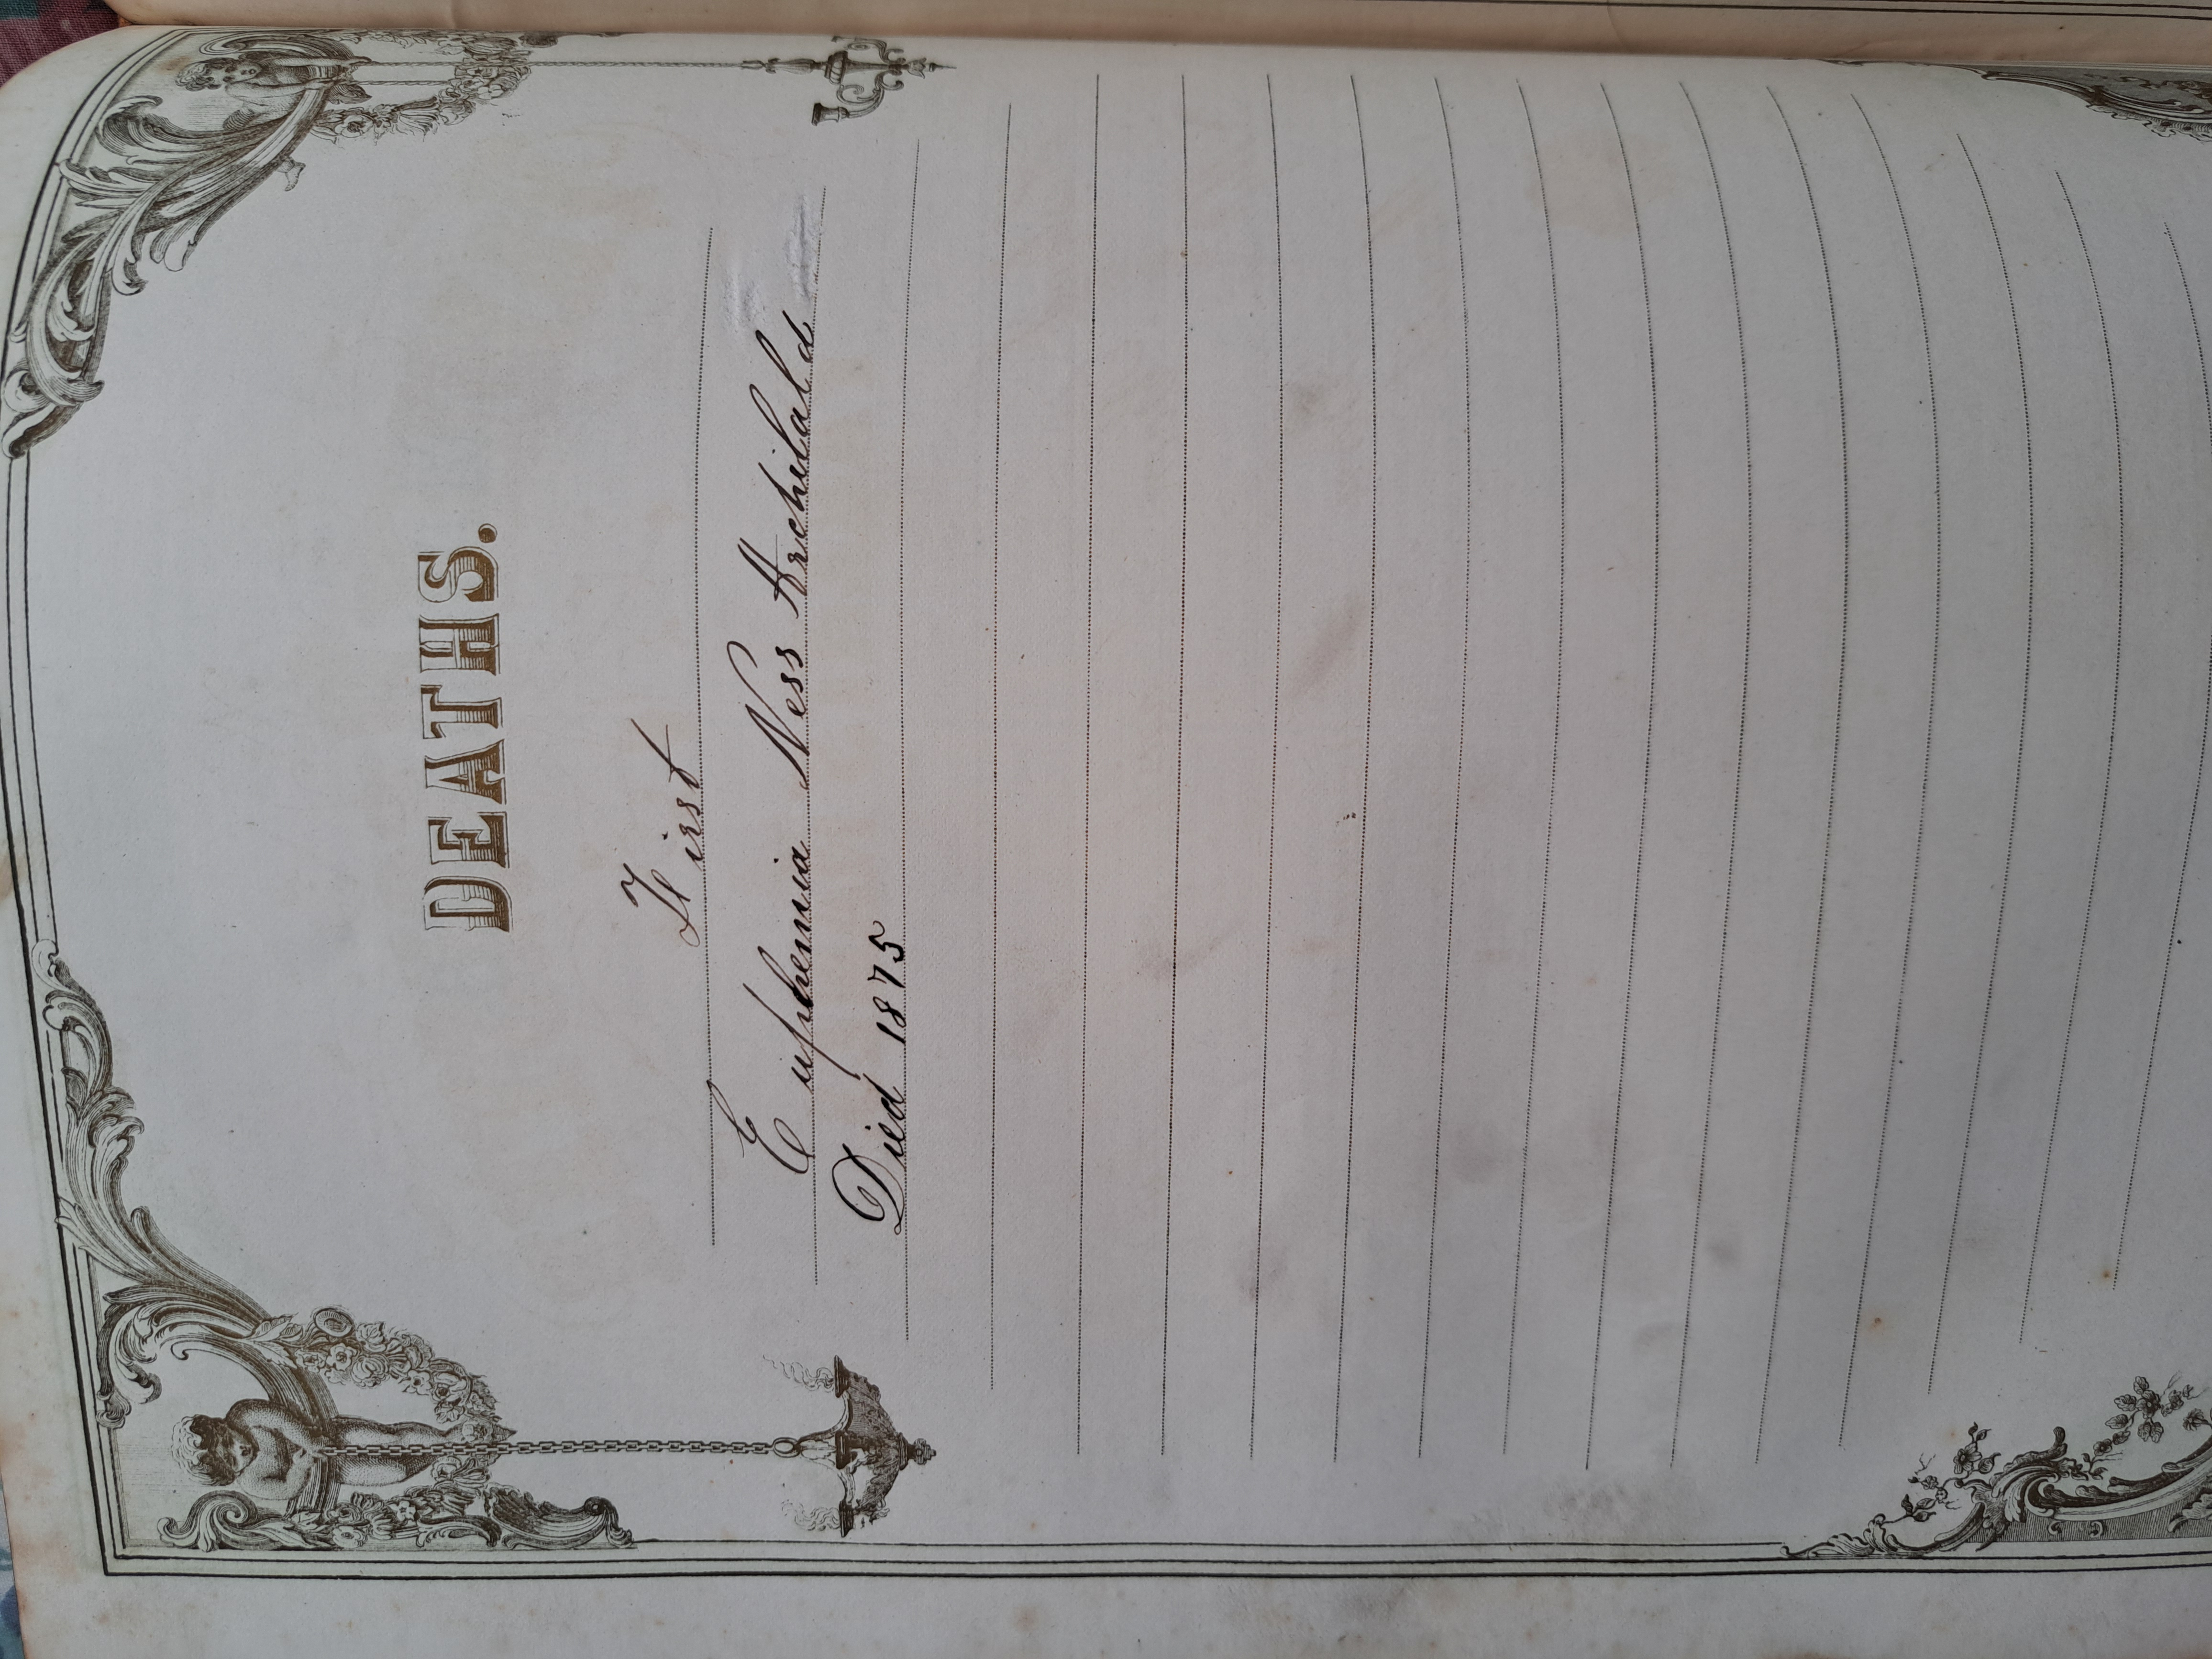 DEATHS.
First
Euphemia Ness Archibald
Died 1875